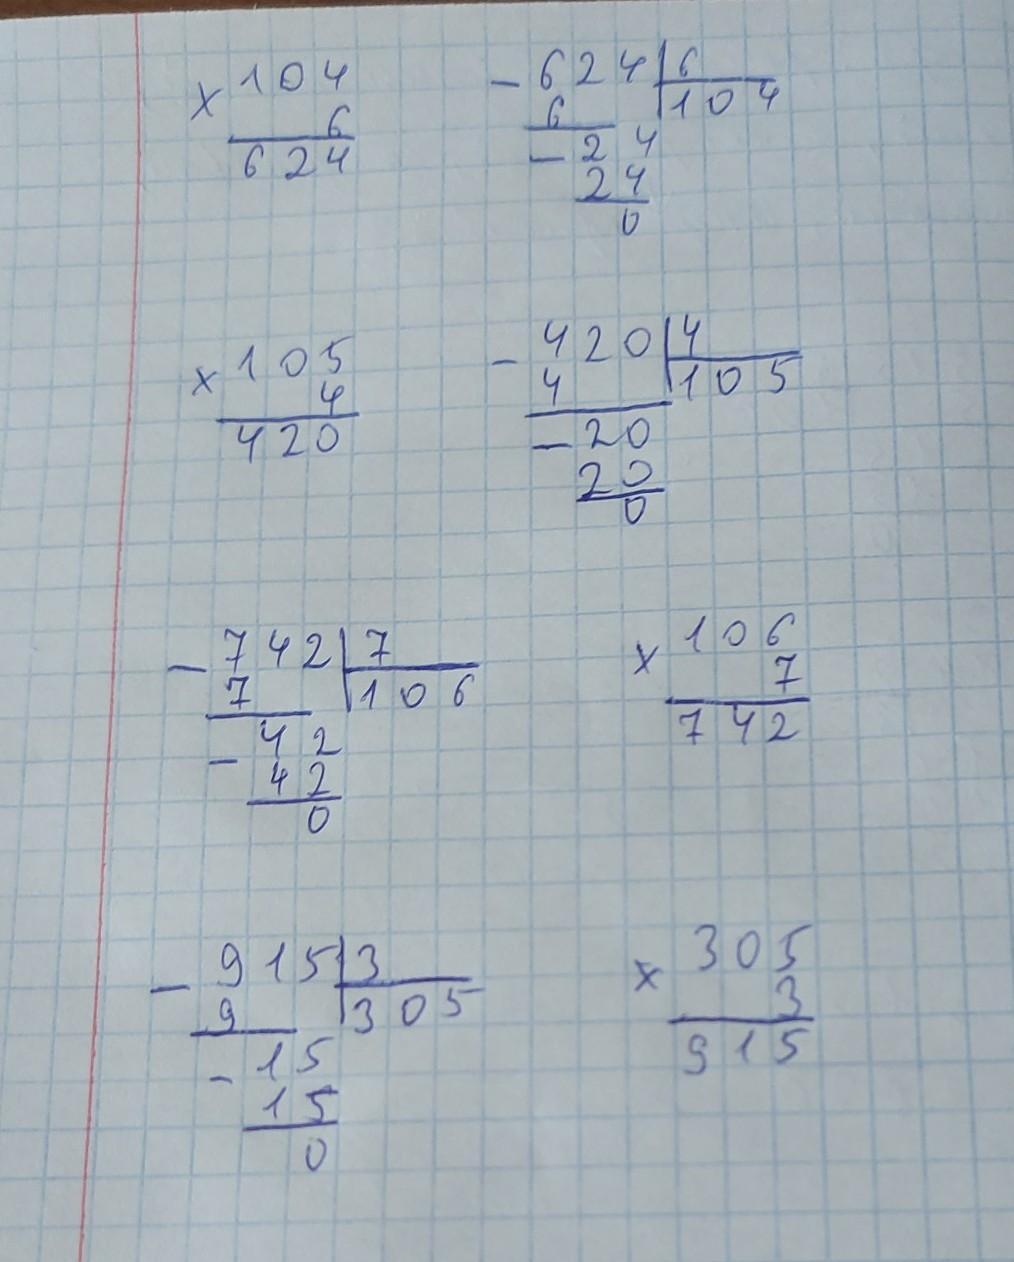 × 104
6
624
- 624 | 6
6 104
- 24
24
0
× 105
4
420
- 420 | 4
4 105
- 20
20
0
- 742 | 7
7 106
- 42
42
0
× 106
7
742
- 915 | 3
9 305
- 15
15
0
× 305
3
915